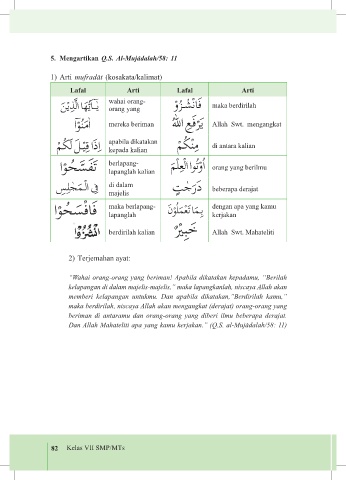 5. Mengartikan Q.S. Al-Mujādalah/58: 11
1) Arti mufradāt (kosakata/kalimat)
Lafal Arti Lafal Arti
يٰٓاَيُّهَا الَّذِيْنَ wahai orang-orang yang فَانْشُزُوْا maka berdirilah
اٰمَنُوْٓا mereka beriman يَرْفَعِ اللّٰهُ Allah Swt. mengangkat
اِذَا قِيْلَ لَكُمْ apabila dikatakan kepada kalian مِنْكُمْ di antara kalian
تَفَسَّحُوْا berlapang-lapanglah kalian اُوْتُوا الْعِلْمَ orang yang berilmu
فِى الْمَجٰلِسِ di dalam majelis دَرَجٰتٍ beberapa derajat
فَافْسَحُوْا maka berlapang-lapanglah بِمَا تَعْمَلُوْنَ dengan apa yang kamu kerjakan
انْشُزُوْا berdirilah kalian خَبِيْرٌ Allah Swt. Mahateliti
2) Terjemahan ayat:
"Wahai orang-orang yang beriman! Apabila dikatakan kepadamu, "Berilah
kelapangan di dalam majelis-majelis," maka lapangkanlah, niscaya Allah akan
memberi kelapangan untukmu. Dan apabila dikatakan,"Berdirilah kamu,"
maka berdirilah, niscaya Allah akan mengangkat (derajat) orang-orang yang
beriman di antaramu dan orang-orang yang diberi ilmu beberapa derajat.
Dan Allah Mahateliti apa yang kamu kerjakan." (Q.S. al-Mujādalah/58: 11)
82 Kelas VII SMP/MTs